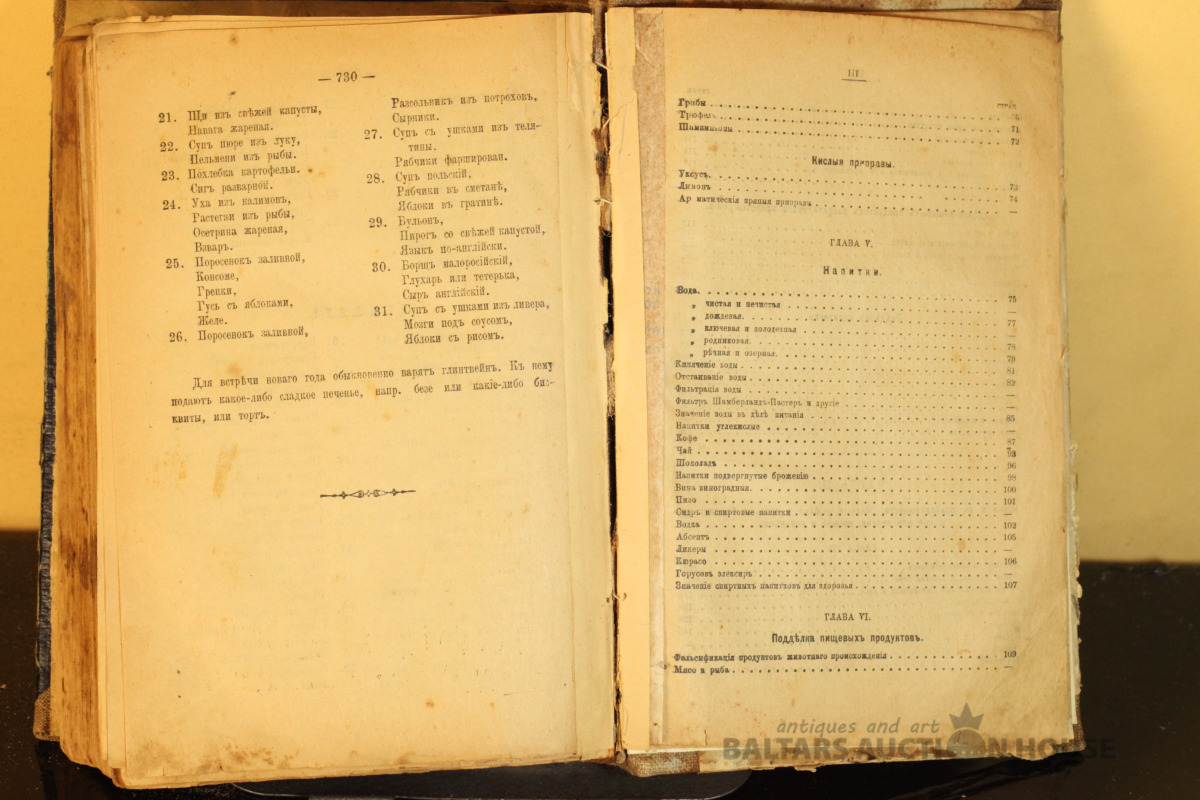 — 730 —
21. Щи изъ свѣжей капусты,
Навага жареная.
22. Супъ пюре изъ луку,
Пельмени изъ рыбы.
23. Похлебка картофельн.
Сигъ разварной.
24. Уха изъ налимовъ,
Растегаи изъ рыбы,
Осетрина жареная,
Взваръ.
25. Поросенокъ заливной,
Консоме,
Гренки,
Гусь съ яблоками,
Желе.
26. Поросенокъ заливной,
Разсольникъ изъ потроховъ,
Сырники.
27. Супъ съ ушками изъ теля-
тины,
Рябчики фарширован.
28. Супъ польскій,
Рябчики въ сметанѣ,
Яблоки въ гратинѣ.
29. Бульонъ,
Пирогъ со свѣжей капустой,
Языкъ по-англійски.
30. Борщъ малоросійскій,
Глухарь или тетерька,
Сыръ англійскій.
31. Супъ съ ушками изъ ливера,
Мозги подъ соусомъ,
Яблоки съ рисомъ.
Для встрѣчи новаго года обыкновенно варятъ глинтвейнъ. Къ нему
подаютъ какое-либо сладкое печенье, напр. безе или какіе-либо бис-
квиты, или тортъ.
III
стран.
Грибы
Трюфель
Шампиньоны 71
72
Кислыя приправы.
Уксусъ 73
Лимонъ 74
Ар матическія пряныя приправы —
ГЛАВА V.
Напитки.
Вода. 75
„ чистая и нечистая —
„ дождевая. 77
„ ключевая и колодезная —
„ родниковая. 78
„ рѣчная и озерная. 79
Кипяченіе воды 81
Отстаиваніе воды 82
Фильтрація воды —
Фильтръ Шамберландъ-Пастеръ и другіе —
Значеніе воды въ дѣлѣ питанія 85
Напитки углекислые —
Кофе 87
Чай 93
Шоколадъ 96
Напитки подвергнутые броженію 98
Вина виноградныя. 100
Пиво 101
Сидръ и спиртовые напитки —
Водка 102
Абсентъ 105
Ликеры —
Кюрасо 106
Горусовъ элексиръ —
Значеніе спиртныхъ напитковъ для здоровья 107
ГЛАВА VI.
Поддѣлка пищевыхъ продуктовъ.
Фальсификація продуктовъ животнаго происхожденія 109
Мясо и рыба —
antiques and art
BALTARS AUCTION HOUSE